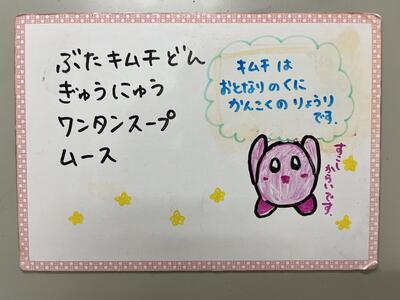 ぶたキムチどん
ぎゅうにゅう
ワンタンスープ
ムース
キムチは
おとなりのくに
かんこくのりょうり
です。
すこし
からいです。